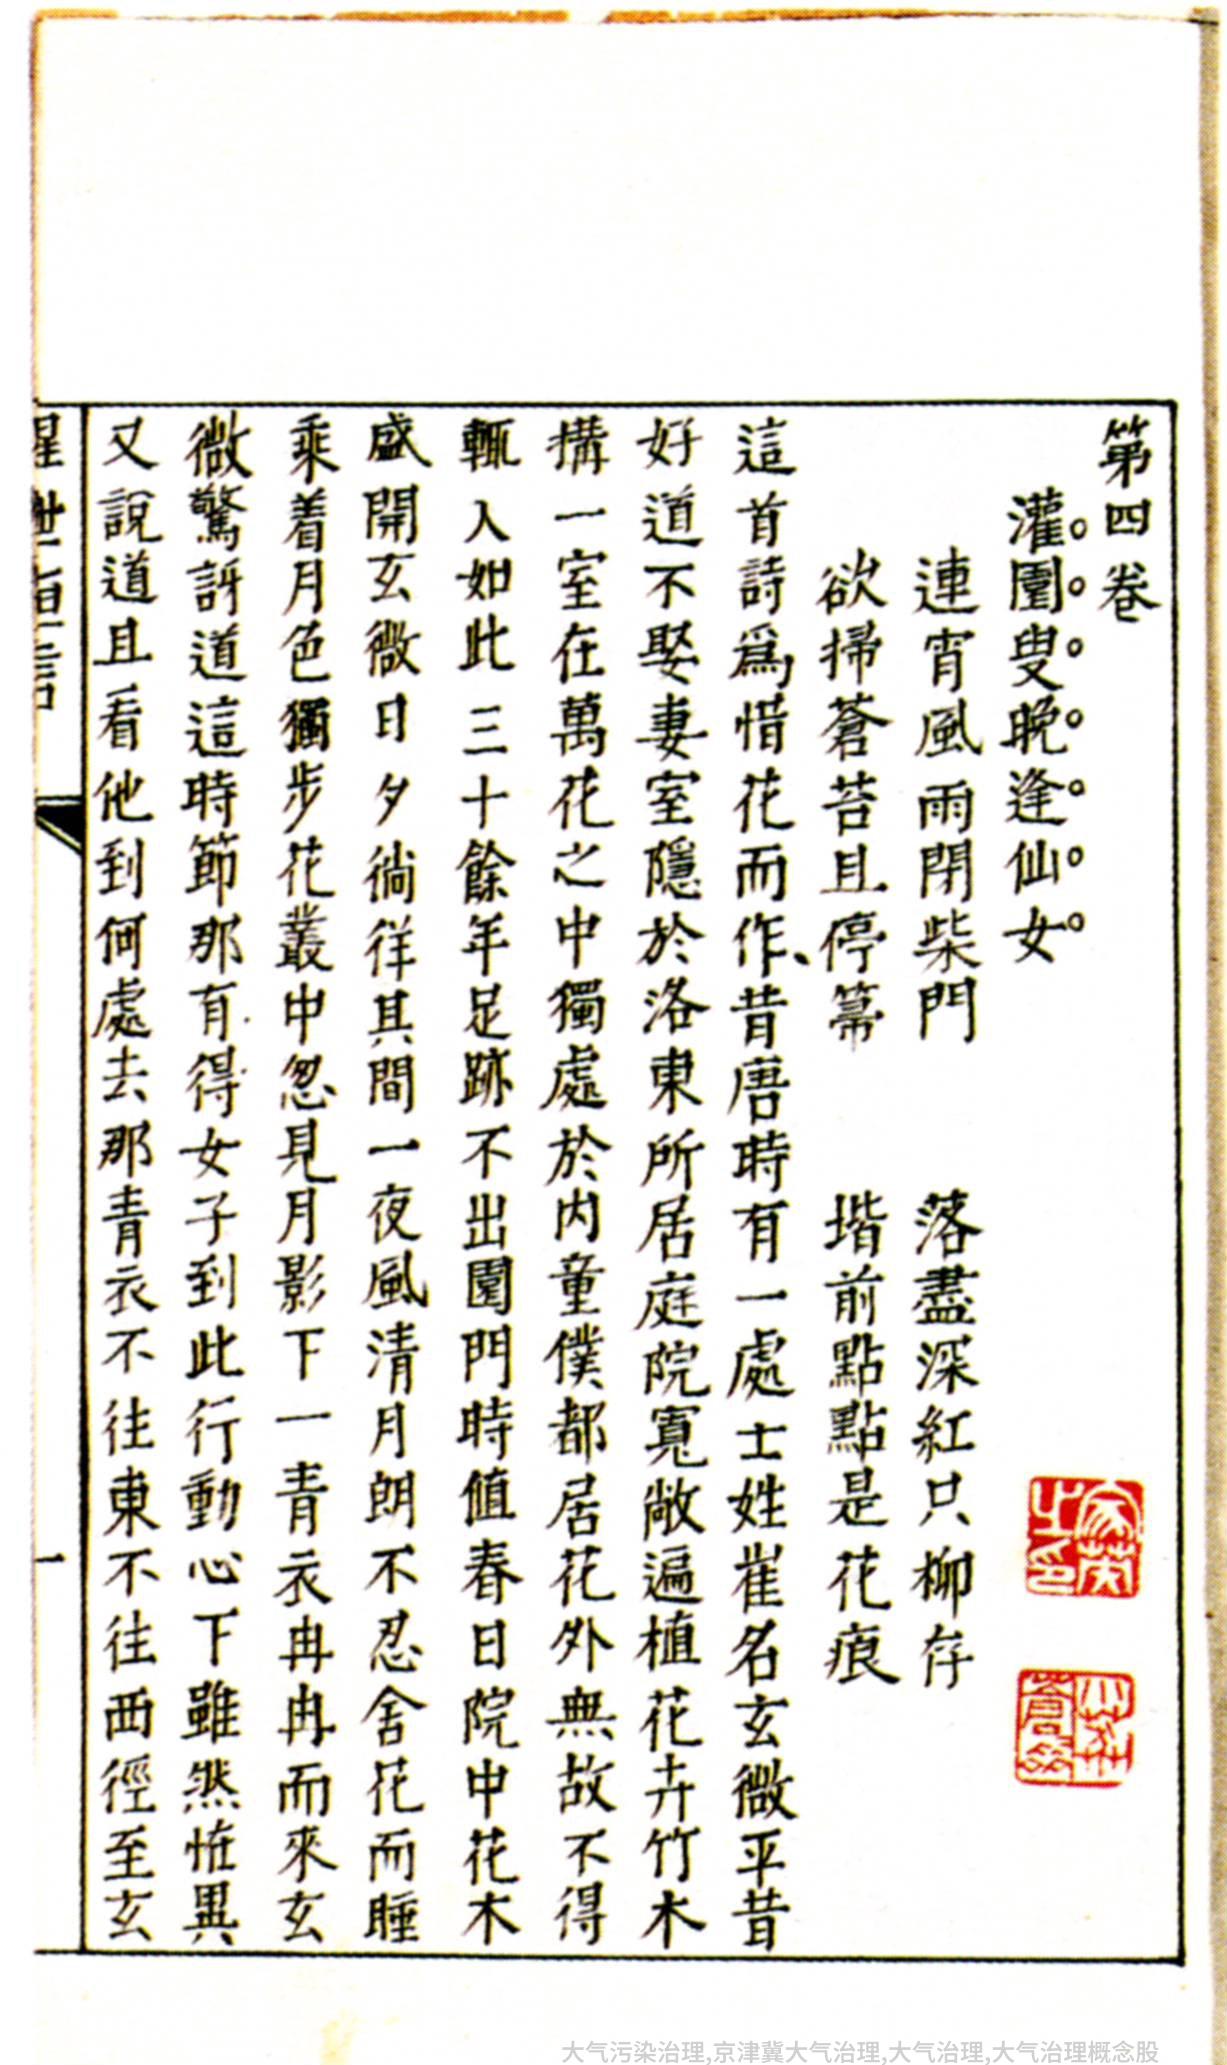 第四卷
灌園叟晚逢仙女
連宵風雨閉柴門 落盡深紅只柳存
欲掃蒼苔且停箒 堦前點點是花痕
這首詩爲惜花而作、昔唐時有一處士姓崔名玄微平昔
好道不娶妻室隱於洛東所居庭院寬敞遍植花卉竹木
搆一室在萬花之中獨處於內童僕都居花外無故不得
輒入如此三十餘年足跡不出園門時值春日院中花木
盛開玄微日夕徜徉其間一夜風清月朗不忍舍花而睡
乘着月色獨步花叢中忽見月影下一青衣冉冉而來玄
微驚訝道這時節那有得女子到此行動心下雖然恠異
又說道且看他到何處去那青衣不往東不往西徑至玄
醒世恒言 一
大气污染治理,京津冀大气治理,大气治理,大气治理概念股